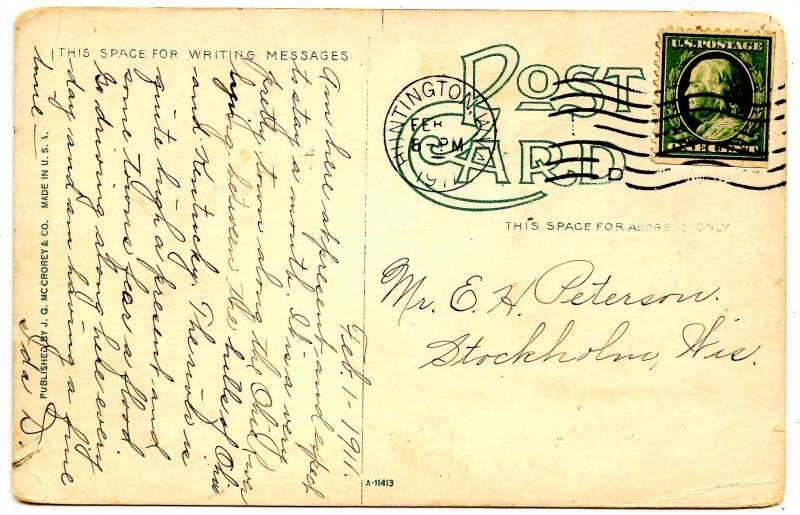 THIS SPACE FOR WRITING MESSAGES
Feb. 1-1911.
Am here at present and expect
to stay a month. It is a very
pretty town along the Ohio
lying between the hills of Ohio
and Kentucky. The river is
quite high at present and
some towns fear a flood
Go driving along here every
day and am having a fine
time—
Ida D.
PUBLISHED BY J. G. MCCROREY & CO. MADE IN U.S.A.
A-11413
POST CARD
HUNTINGTON, W.
FEB
8-PM
1911
U.S. POSTAGE
ONE CENT
THIS SPACE FOR ADDRESS ONLY
Mr. E. H. Peterson.
Stockholm, Wis.